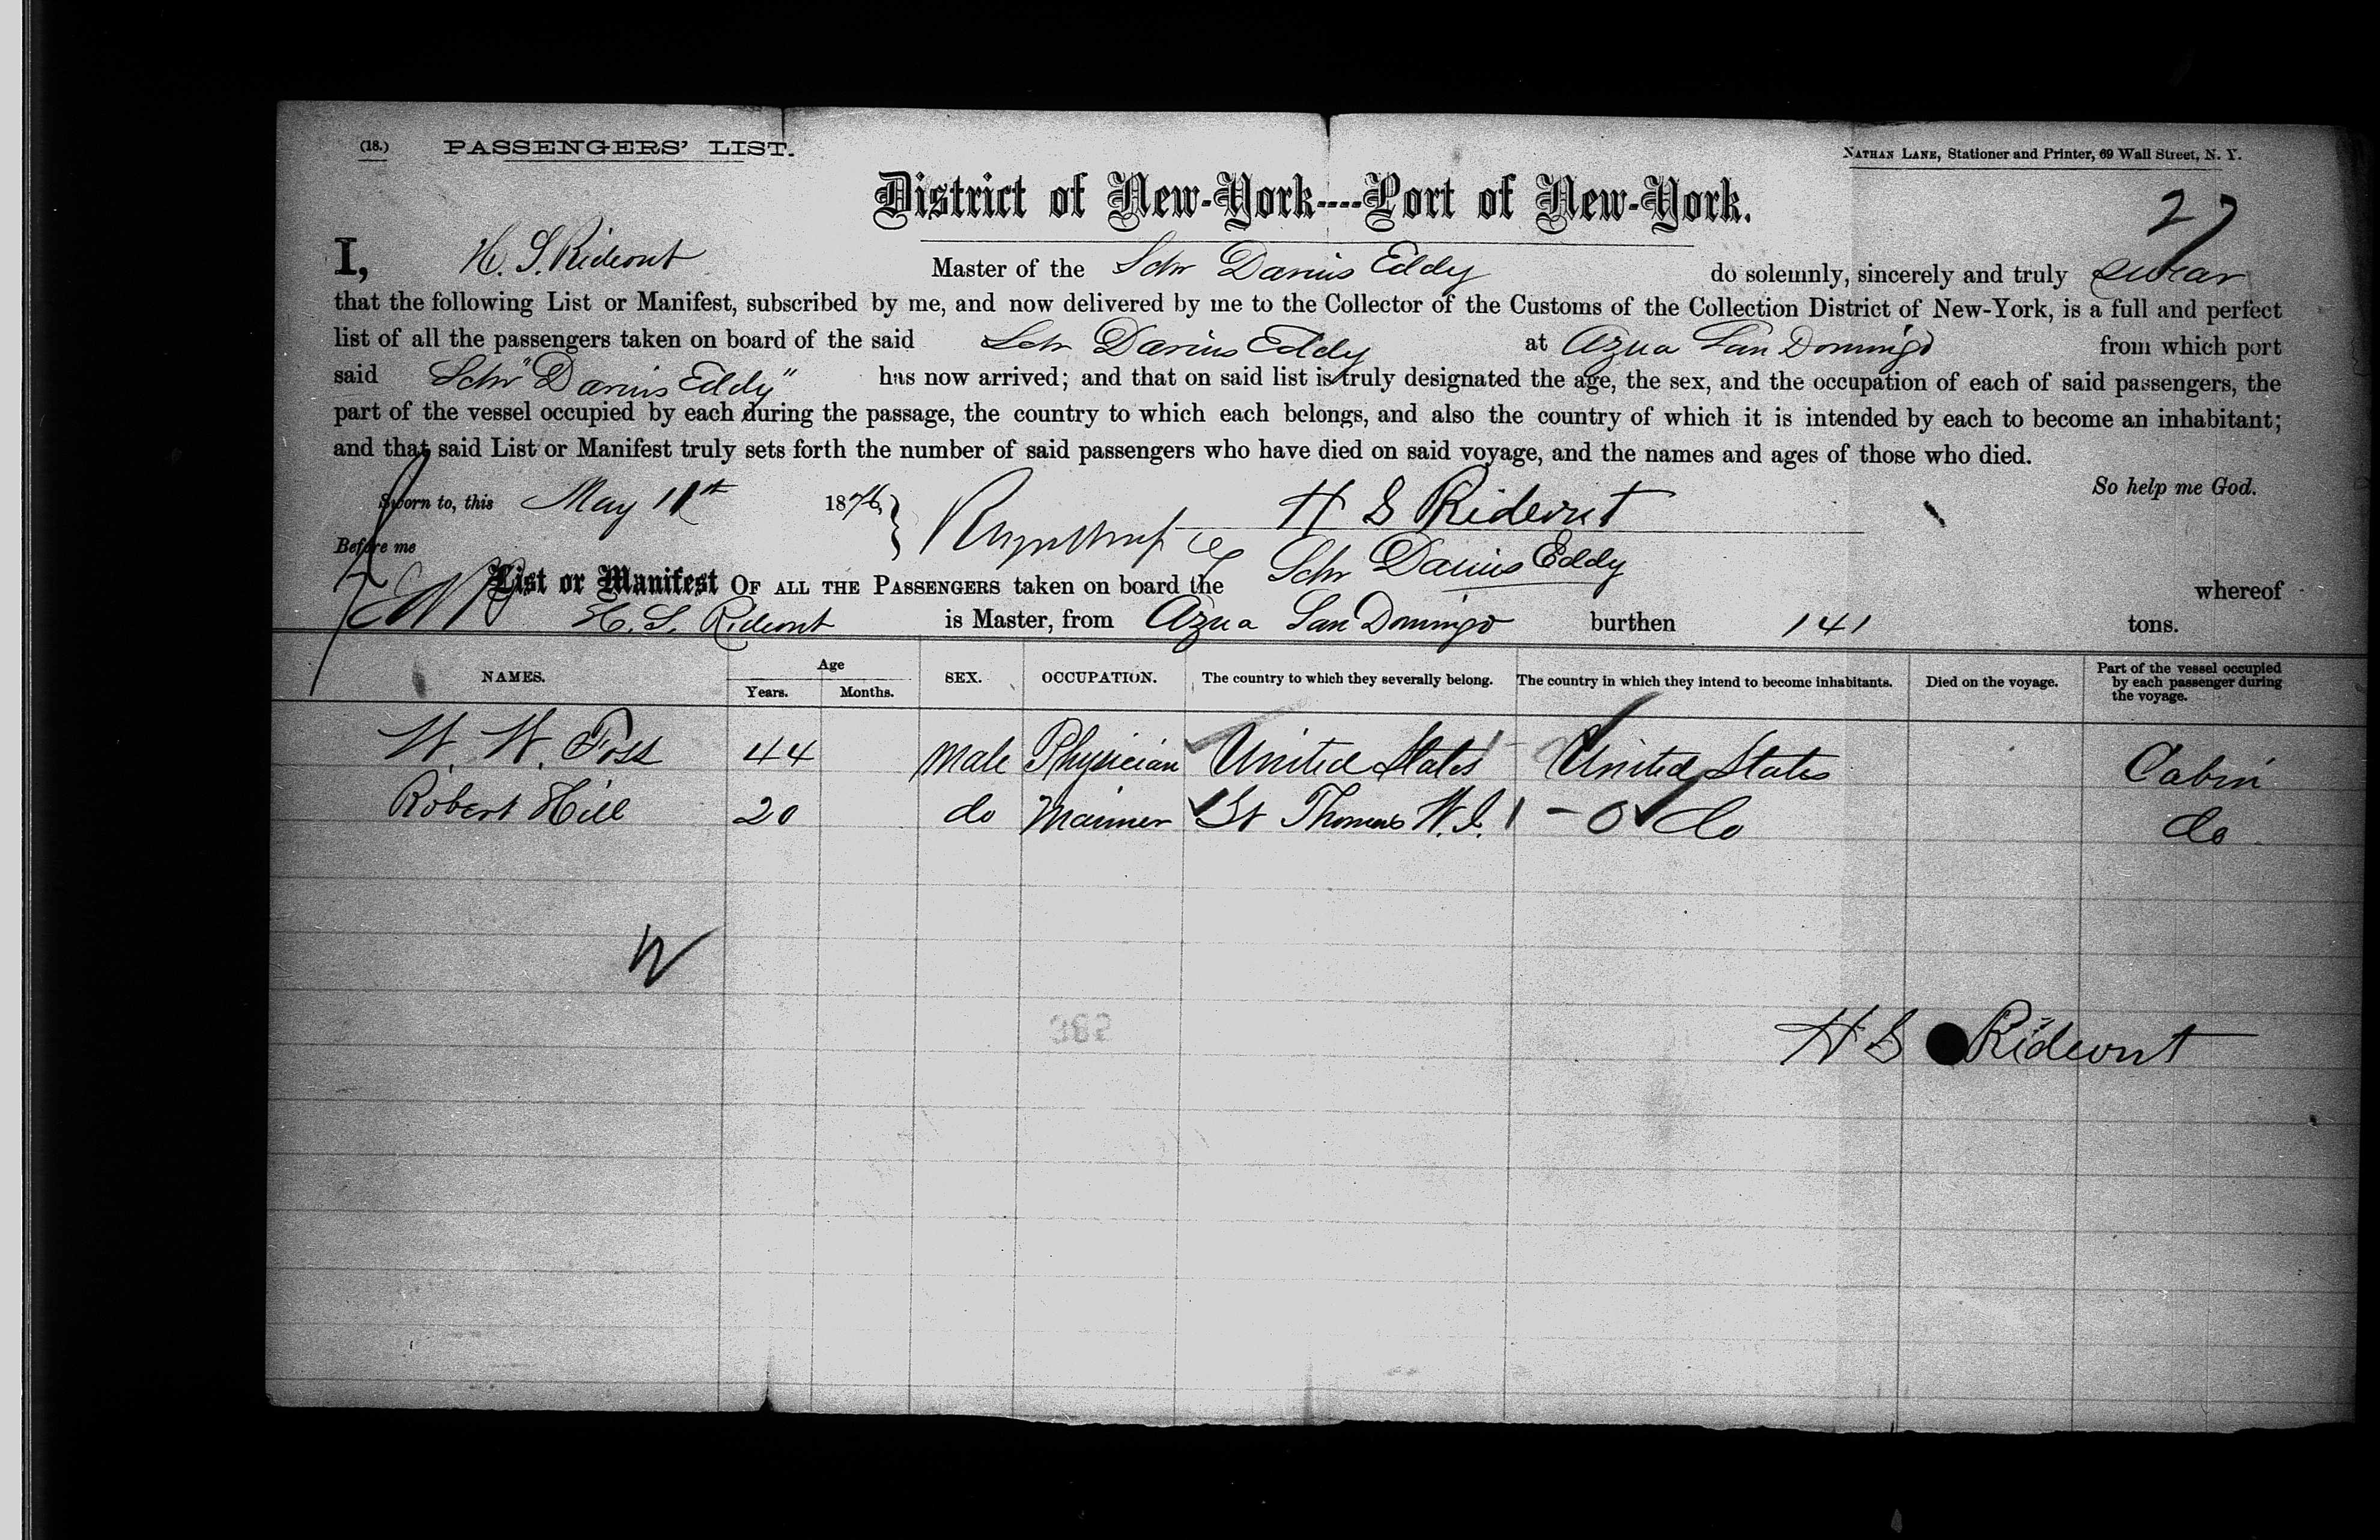 (18.) PASSENGERS' LIST.
NATHAN LANE, Stationer and Printer, 69 Wall Street, N. Y.
District of New-York----Port of New-York.
27
I, H. S. Rideout Master of the Schr Darius Eddy do solemnly, sincerely and truly swear
that the following List or Manifest, subscribed by me, and now delivered by me to the Collector of the Customs of the Collection District of New-York, is a full and perfect
list of all the passengers taken on board of the said Schr Darius Eddy at Azua San Domingo from which port
said Schr "Darius Eddy" has now arrived; and that on said list is truly designated the age, the sex, and the occupation of each of said passengers, the
part of the vessel occupied by each during the passage, the country to which each belongs, and also the country of which it is intended by each to become an inhabitant;
and that said List or Manifest truly sets forth the number of said passengers who have died on said voyage, and the names and ages of those who died.
So help me God.
Sworn to, this May 11th 1876 H S Rideout
Before me
List or Manifest OF ALL THE PASSENGERS taken on board the Schr Darius Eddy whereof
H. S. Rideout is Master, from Azua San Domingo burthen 141 tons.
NAMES. Age Years. Months. SEX. OCCUPATION. The country to which they severally belong. The country in which they intend to become inhabitants. Died on the voyage. Part of the vessel occupied by each passenger during the voyage.
W. W. Foss 44 Male Physician United States United States Cabin
Robert Hill 20 do Mariner St Thomas W. I. do do
H S Rideout